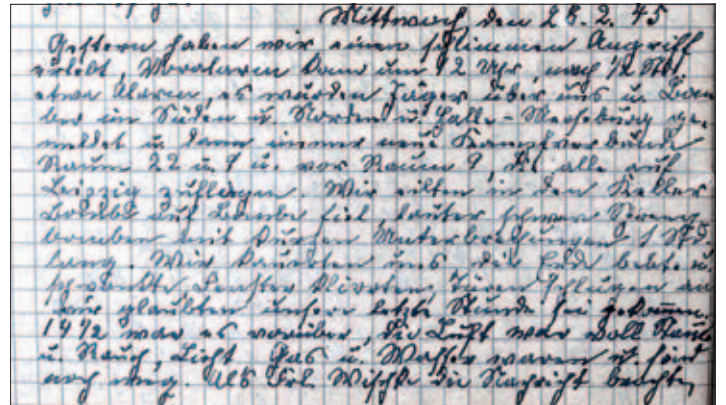 Mittwoch den 28. 2. 45
Gestern haben wir einen schlimmen Angriff
erlebt, Voralarm kam um 12 Uhr, nach ½ Std.
etwa Alarm, es wurden Jäger über uns u. Bom
ber im Süden u. Norden u. Halle-Merseburg ge
meldet u. dann immer neue Kampfverbände
Raum 22 u. 9 u. vor Raum 9, die alle auf
Leipzig zuflogen. Wir eilten in den Keller
Bombe auf Bombe fiel, lauter schwere Spreng
bomben mit kurzen Unterbrechungen 1 Std.
lang. Wir kauerten uns, die Erde bebte u.
schwankte Fenster klirrten, Türen schlugen
wir glaubten unsere letzte Stunde sei gekommen.
14½ war es vorüber, die Luft war voll Staub
u. Rauch, Licht Gas u. Wasser waren u. sind
noch weg. Als Frl. die Nachricht brachte,